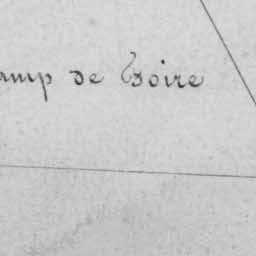 amp de Foire